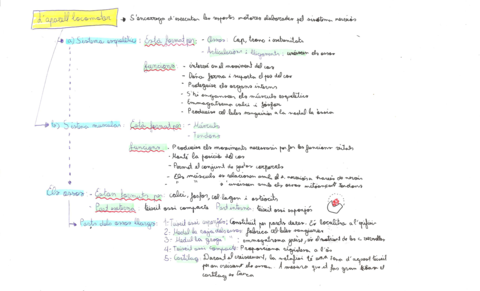 L'aparell locomotor → S'encarrega d'executar les respostes motores elaborades pel sistema nerviós
a) Sistema esquelètic: Està format per - Ossos: Cap, tronc i extremitats
- Articulacions i lligaments: uneixen els ossos
Funcions - intervé en el moviment del cos
- Dóna forma i suporta el pes del cos
- Protegeix els òrgans interns
- S'hi enganxen els músculs esquelètics
- Emmagatzema calci i fòsfor
- Produeix cèl·lules sanguínies a la medul·la òssia
b) Sistema muscular: Està format per - Músculs
- Tendons
Funcions - Produeix els moviments necessaris per fer les funcions vitals
- Manté la posició del cos
- Permet el conjunt de gestos corporals
- Els músculs es relacionen amb el s. nerviós través de nervis
" " s'uneixen amb els ossos mitjançant tendons
Els ossos - Estan formats per calci, fòsfor, col·lagen i osteòcits
- Part externa teixit ossi compacte Part interna teixit ossi esponjós
Parts dels ossos llargs: 1- Teixit ossi esponjós: Constituït per parets Es localitza a l'epífisi
2- Medul·la roja fabrica cèl·lules sanguínies
3- Medul·la groga emmagatzema greix,
4- Teixit ossi compacte: Proporciona rigidesa a l'os
5- Cartílag: Durant el creixement, la metàfisi té una zona d'aquest teixit
per on creixent els ossos. A mesura que et fas gran
cartílag es tanca